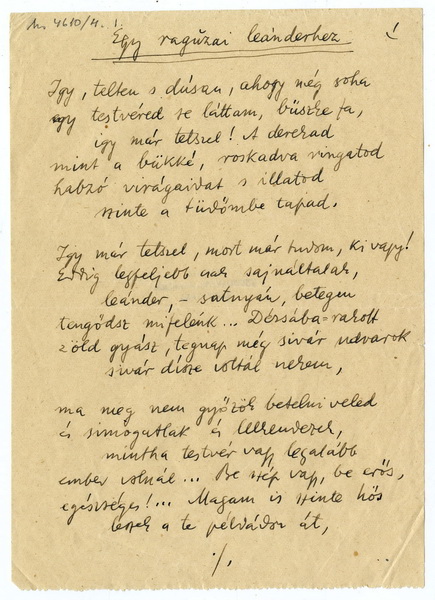 An 4610/4. 1.
Egy ragúzai leánderhez
Igy, telten s dúsan, ahogy még soha
egy testvéred se láttam, büszke fa,
igy már tetszel! A derekad
mint a bükké, roskadva ringatod
habzó virágaidat s illatod
szinte a tüdőmbe tapad.
Igy már tetszel, most már tudom, ki vagy!
Eddig legfeljebb csak sajnáltalak,
leánder, – satnyán, betegen
tengődsz mifelénk... Dézsába-rakott
zöld gyász, tegnap még sivár udvarok
sivár dísze voltál nekem,
ma meg nem győzök betelni veled
és simogatlak és lelkendezek,
mintha testvér vagy legalább
ember volnál... Be szép vagy, be erős,
egészséges!... Magam is szinte hős
leszek a te példádon át,
./.